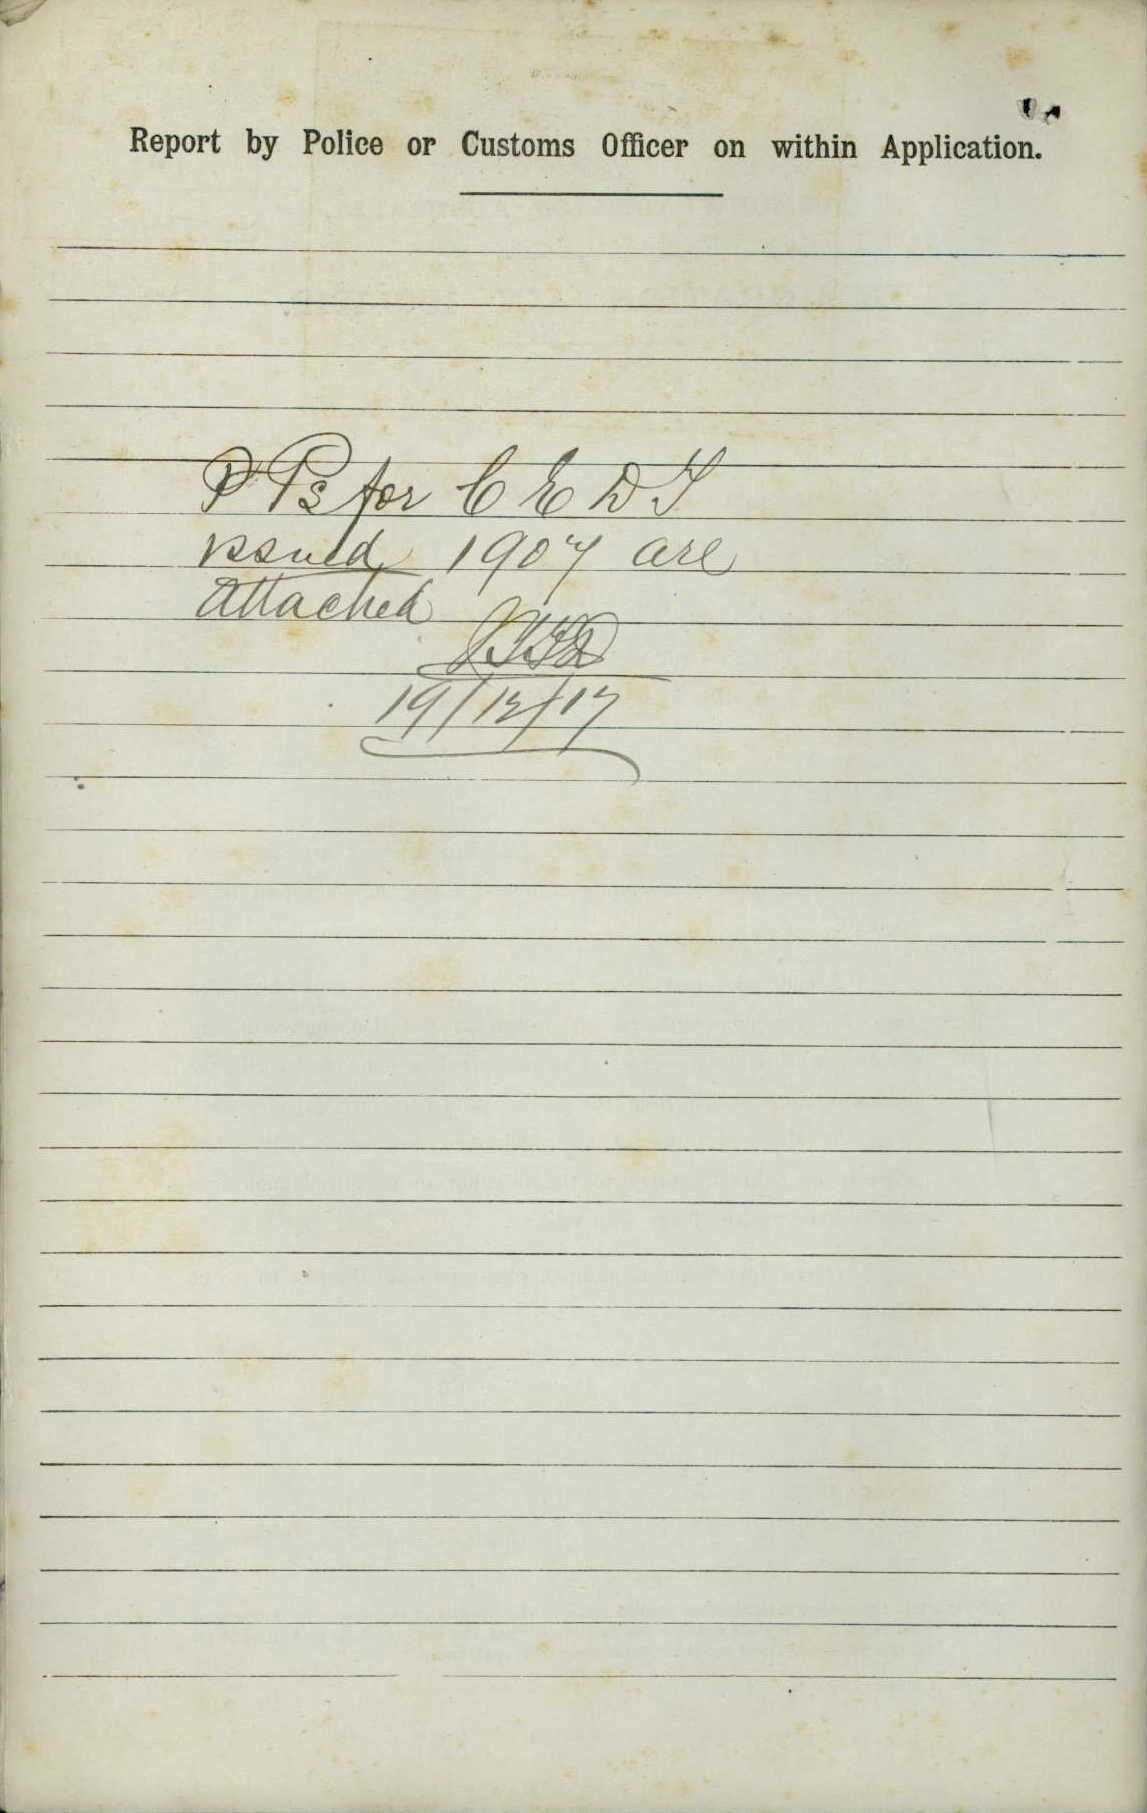 Report by Police or Customs Officer on within Application.
P Ps for C E D T
issued 1907 are
attached
19/12/17